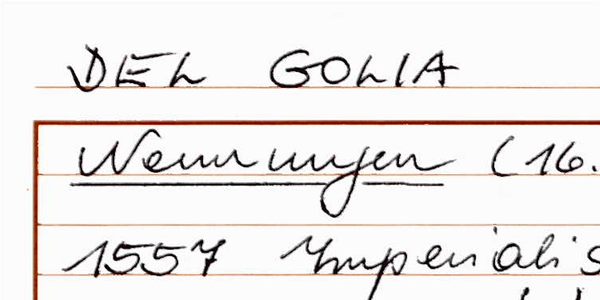 DEL GOLIA
Nennungen (16.
1557 Imperialis